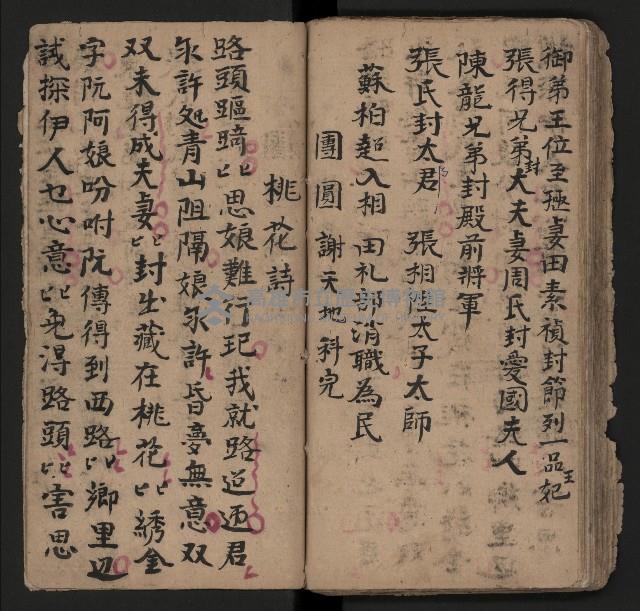 御弟王位至極妻田素禎封節列一品王妃
張得兄弟封大夫妻周氏封愛國夫人
陳龍兄弟封殿前將軍
張氏封太君 張相陞太子太師
蘇柏超入相 田礼部消職為民
團圓 謝天地科完
桃花詩
路頭嶇𨄮匕思娘難行玘我就路迢遞君
𠁞許処青山阻隔娘𠁞許昏夢無意双
双未得成夫妻匕封出藏在桃花匕綉金
字阮阿娘吩咐阮傳得到西路匕鄉里辺
試探伊人乜心意匕黾淂路頭匕害思
高雄市立歷史博物館